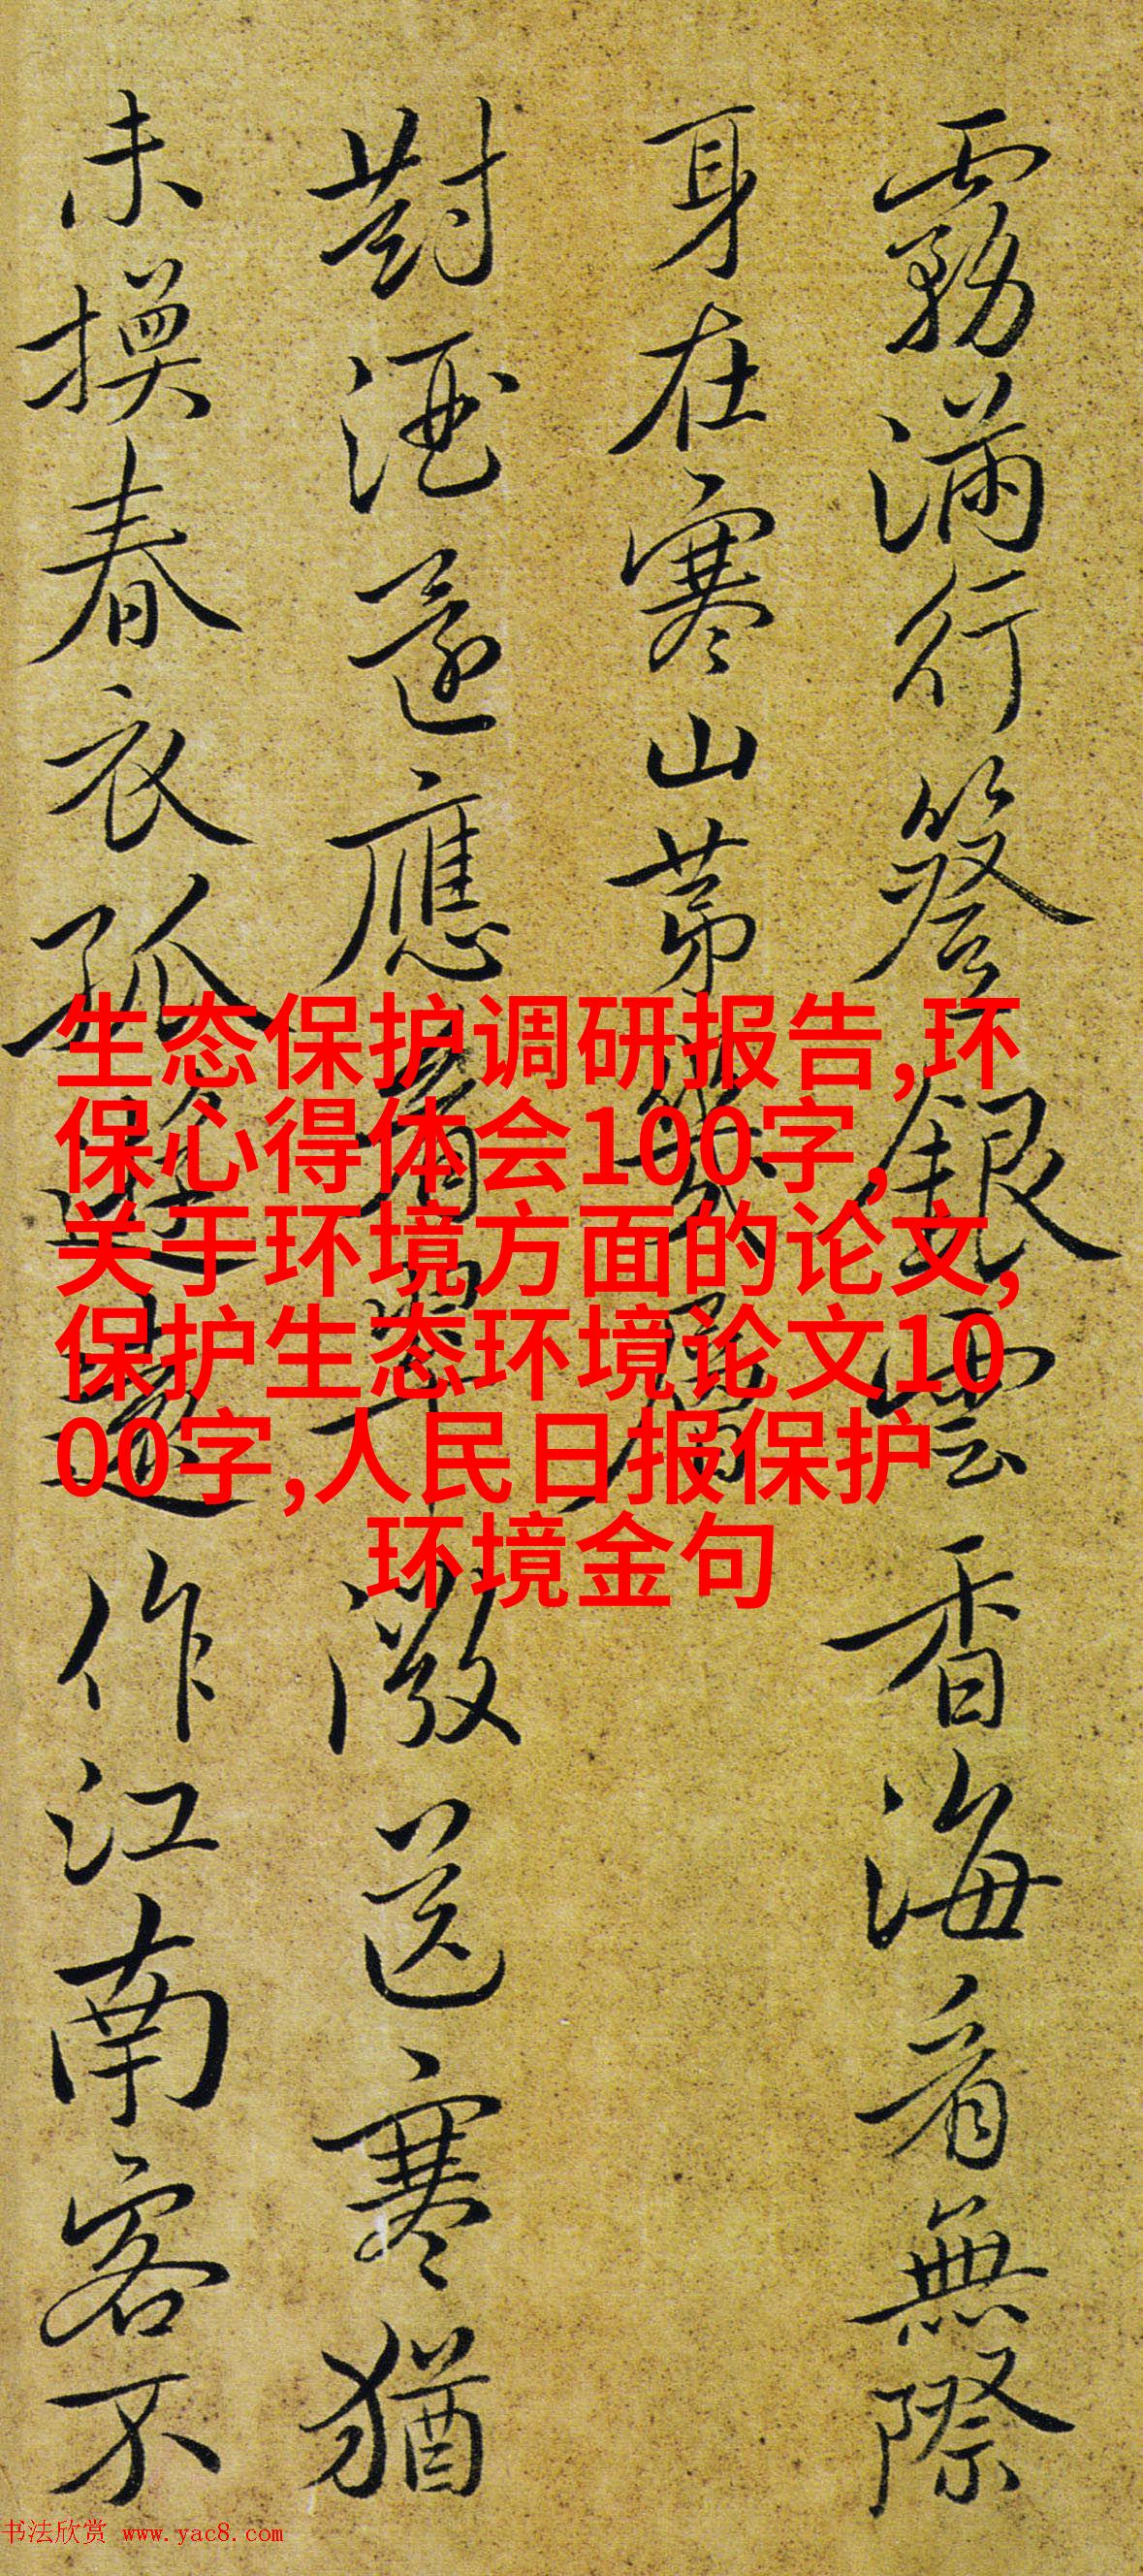 霧满行簦銀雲香海看無際
身在寒山第幾層
對酒還應看翠微送寒猶
未換春衣孤遊還作江南客不
生态保护调研报告,环
保心得体会100字,
关于环境方面的论文,
保护生态环境论文10
00字,人民日报保护
环境金句
书法欣赏 www.yac8.com